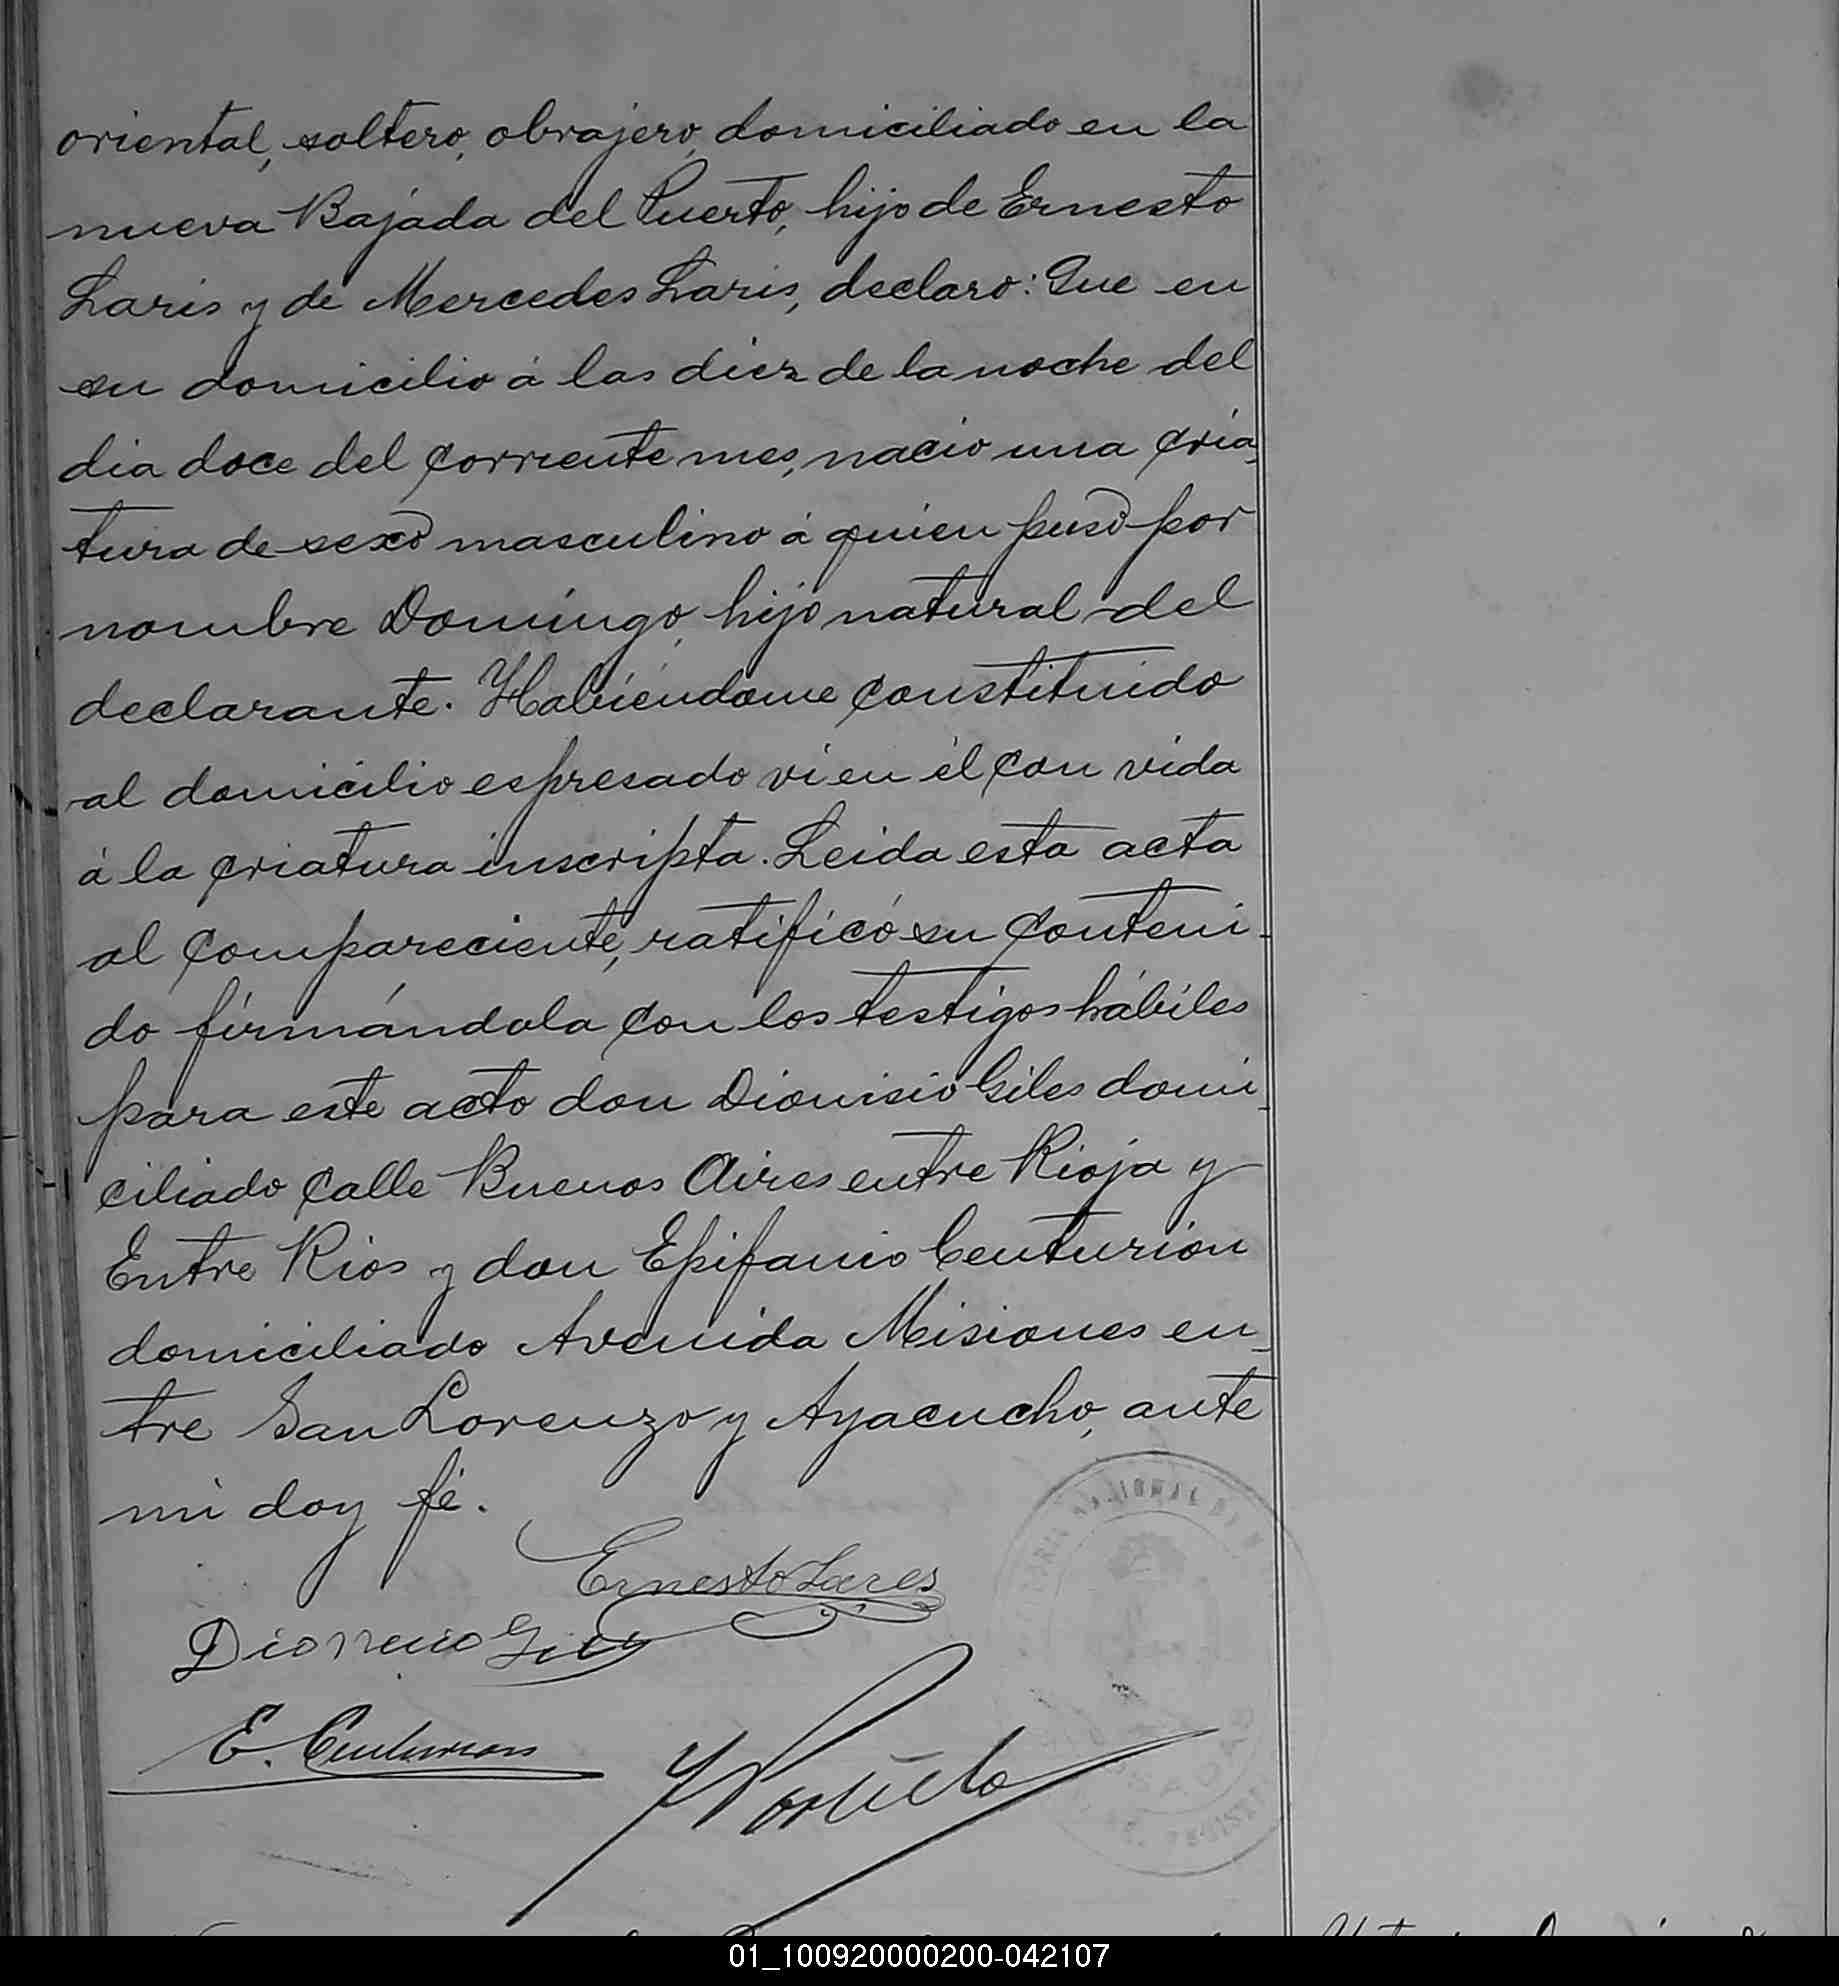 oriental, soltero, obrajero, domiciliado en la
nueva Bajada del Puerto, hijo de Ernesto
Laris y de Mercedes Laris, declaro: Que en
su domicilio á las diez de la noche del
dia doce del corriente mes, nació una cria-
tura de sexo masculino á quien puso por
nombre Domingo, hijo natural del
declarante. Habiéndome constituido
al domicilio espresado vi en él con vida
á la criatura inscripta. Leida esta acta
al compareciente, ratificó su conteni-
do firmándola con los testigos hábiles
para este acto don Dionisio Giles domi-
ciliado calle Buenos Aires entre Rioja y
Entre Rios y don Epifanio Centurión
domiciliado Avenida Misiones en-
tre San Lorenzo y Ayacucho, ante
mi doy fé.
Ernesto Lares
Dionicio
E. Centurion
01_100920000200-042107